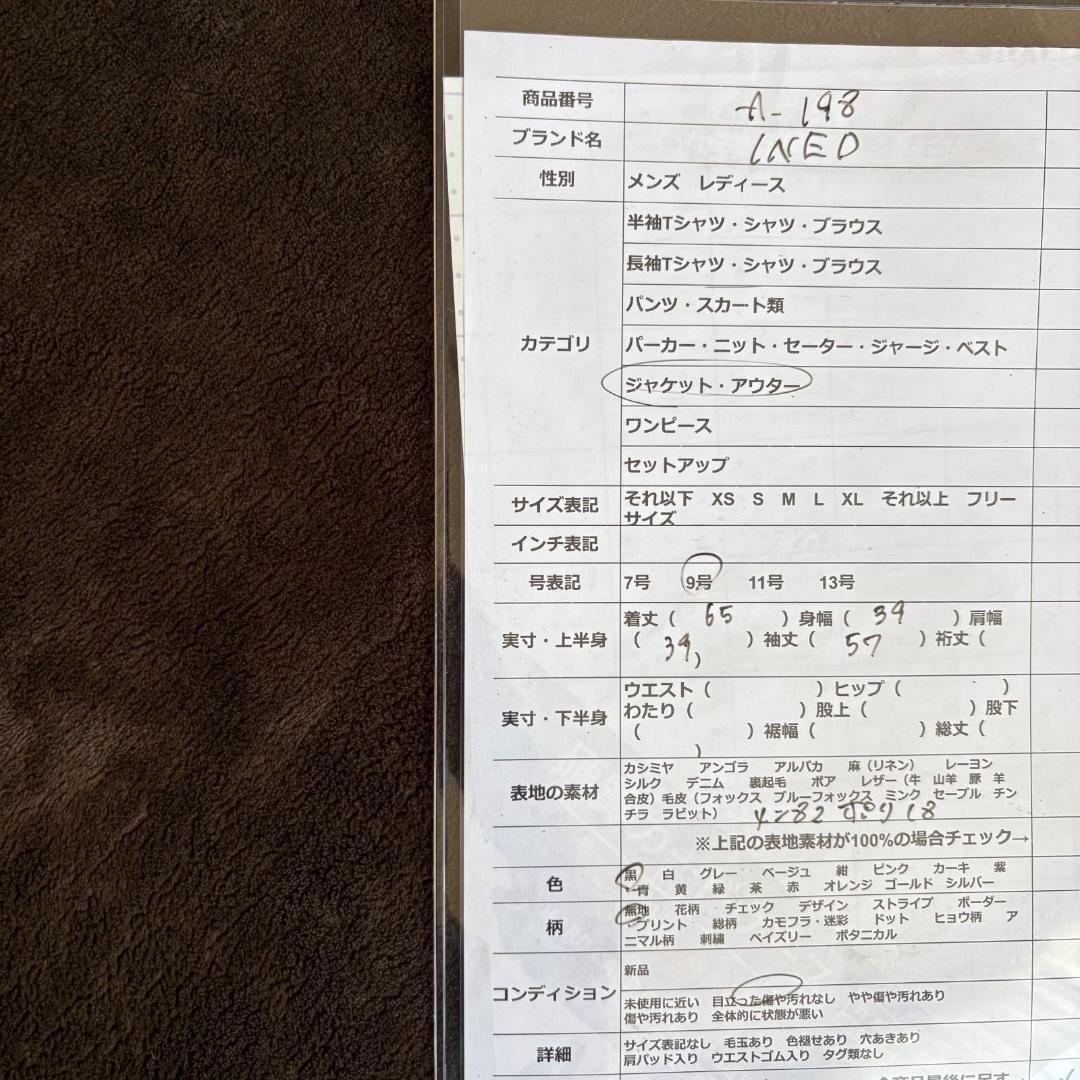 商品番号 A-198
ブランド名 INED
性別 メンズ レディース
半袖Tシャツ・シャツ・ブラウス
長袖Tシャツ・シャツ・ブラウス
パンツ・スカート類
カテゴリ パーカー・ニット・セーター・ジャージ・ベスト
ジャケット・アウター
ワンピース
セットアップ
サイズ表記 それ以下 XS S M L XL それ以上 フリー
サイズ
インチ表記
号表記 7号 9号 11号 13号
着丈（ 65 ）身幅（ 39 ）肩幅
実寸・上半身 （ 39 ）袖丈（ 57 ）裄丈（
）
ウエスト（ ）ヒップ（ ）
実寸・下半身 わたり（ ）股上（ ）股下
（ ）裾幅（ ）総丈（
）
カシミヤ アンゴラ アルパカ 麻（リネン） レーヨン
シルク デニム 裏起毛 ボア レザー（牛 山羊 豚 羊
表地の素材 合皮）毛皮（フォックス ブルーフォックス ミンク セーブル チン
チラ ラビット） メン82 ポリ18
※上記の表地素材が100%の場合チェック→
黒 白 グレー ベージュ 紺 ピンク カーキ 紫
色 青 黄 緑 茶 赤 オレンジ ゴールド シルバー
無地 花柄 チェック デザイン ストライプ ボーダー
柄 プリント 総柄 カモフラ・迷彩 ドット ヒョウ柄 ア
ニマル柄 刺繍 ペイズリー ボタニカル
新品
コンディション 未使用に近い 目立った傷や汚れなし やや傷や汚れあり
傷や汚れあり 全体的に状態が悪い
詳細 サイズ表記なし 毛玉あり 色褪せあり 穴あきあり
肩パッド入り ウエストゴム入り タグ類なし